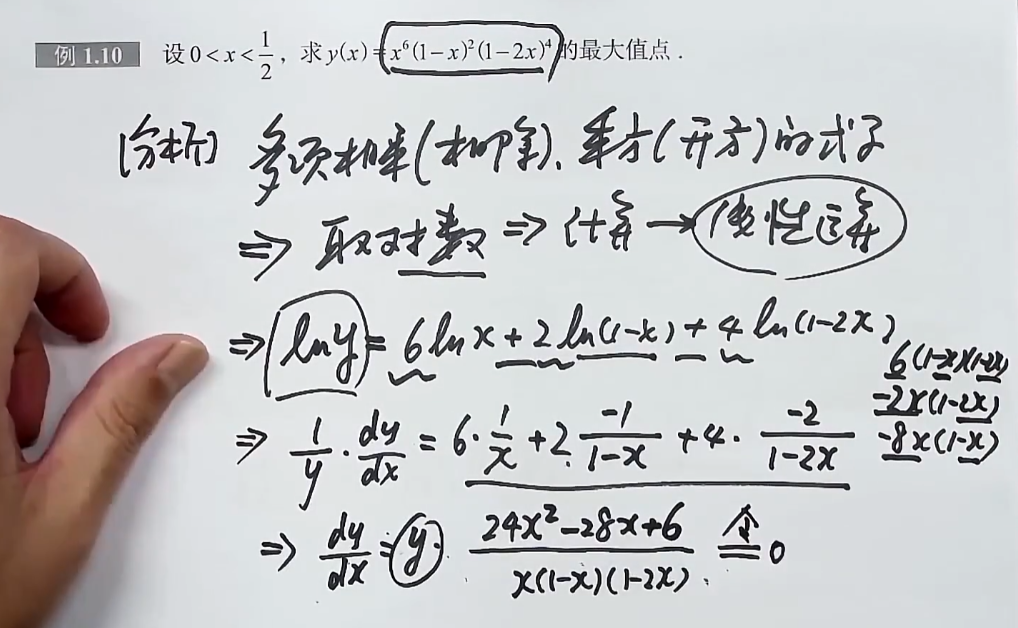 例 1.10 设 0<x<1/2, 求 y(x)=x⁶(1-x)²(1-2x)⁴ 的最大值点.
[分析] 多项相乘(相除)、乘方(开方)的式子
⇒ 取对数 ⇒ 计算 → 线性运算
⇒ ln y = 6 ln x + 2 ln(1-x) + 4 ln(1-2x)
6(1-x)(1-2x)
-2x(1-2x)
-8x(1-x)
⇒ 1/y · dy/dx = 6·1/x + 2·-1/(1-x) + 4·-2/(1-2x)
⇒ dy/dx = y· (24x²-28x+6)/(x(1-x)(1-2x)) 令= 0